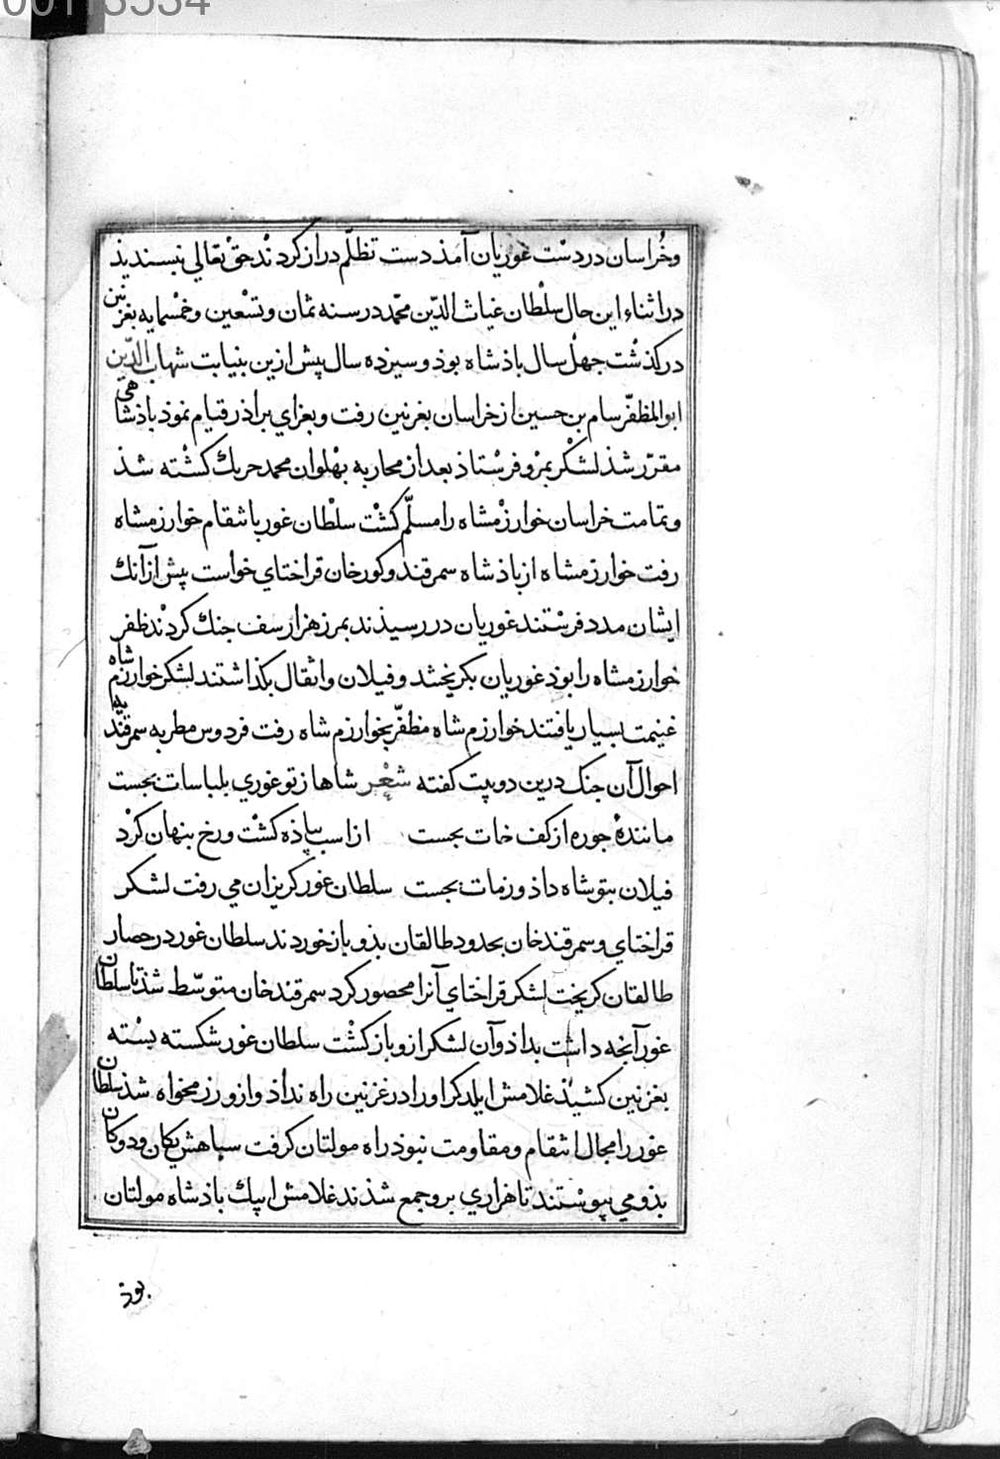 00113534
وخُراسان در دست غوریان آمذ دست تظلّم دراز کردند حق تعالی نبسندیذ
در اثناء این حال سلطان غیاث الدّین محمّد در سنه ثمان وتسعین وخمسمایه بغزنین
درکذشت جهل سال باذشاه بوذ وسیزده سال پیش ازین بنیابت شهاب الدّین
ابوالمظفّر سام بن حسین از خراسان بغزنین رفت وبعزای براذر قیام نموذ باذشاهی
مقرّر شذ لشکر بمرو فرستاذ بعد از محاربه بهلوان محمد خربك کشته شذ
وتمامت خراسان خوارزمشاه را مسلّم کشت سلطان غور بانتقام خوارزمشاه
رفت خوارزمشاه از باذشاه سمرقند وکورخان قراختای خواست پیش از آنك
ایشان مدد فرستند غوریان در رسیذند بمرز هزارسف جنك کردند ظفر
خوارزمشاه را بوذ غوریان بکریختند وفیلان واثقال بکذاشتند لشکر خوارزمشاه
غنیمت بسیار یافتند خوارزم شاه مظفّر بخوارزم شاه رفت فردوس مطربه سمرقندیه
احوال آن جنك درین دو بیت کفته شعر شاها ز تو غوری بلباسات بجست
ماننده جوره از کف خات بجست از اسب بیاذه کشت ورخ بنهان کرد
فیلان بتو شاه داذ وز مات بجست سلطان غور کریزان می رفت لشکر
قراختای وسمرقند خان بحدود طالقان بذو باز خوردند سلطان غور در حصار
طالقان کریخت لشکر قراختای آنرا محصور کرد سمرقند خان متوسّط شذ تا سلطان
غور آنجه داشت بداذ وآن لشکر ازو باز کشت سلطان غور شکسته بسته
بغزنین کشیذ غلامش ایلدکز او را در غزنین راه نداذ وازو رزمخواه شذ سلطان
غور را مجال انتقام ومقاومت نبوذ راه مولتان کرفت سباهش یکان ودوکان
بذو می بیوستند تا هزاری برو جمع شذند غلامش ایبك باذشاه مولتان
بوذ